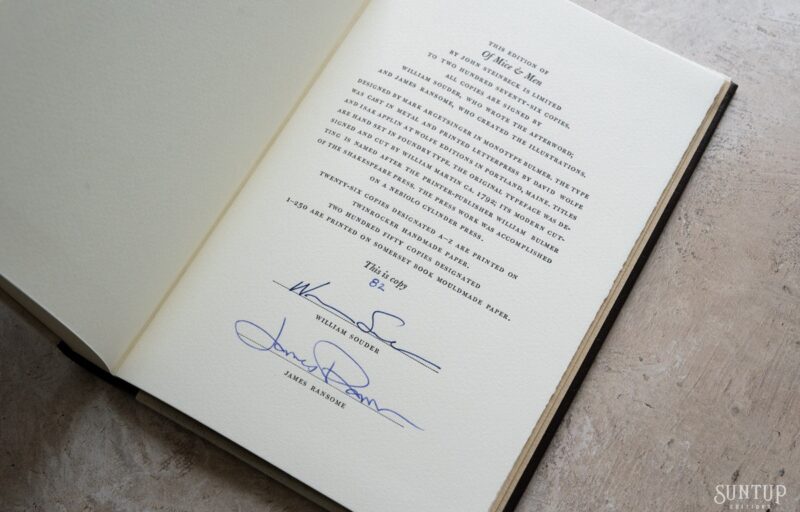 THIS EDITION OF
Of Mice & Men
BY JOHN STEINBECK IS LIMITED
TO TWO HUNDRED SEVENTY-SIX COPIES.
ALL COPIES ARE SIGNED BY
WILLIAM SOUDER, WHO WROTE THE AFTERWORD;
AND JAMES RANSOME, WHO CREATED THE ILLUSTRATIONS.
DESIGNED BY MARK ARGETSINGER IN MONOTYPE BULMER. THE TYPE
WAS CAST IN METAL AND PRINTED LETTERPRESS BY DAVID WOLFE
AND ISAK APPLIN AT WOLFE EDITIONS IN PORTLAND, MAINE. TITLES
ARE HAND SET IN FOUNDRY TYPE. THE ORIGINAL TYPEFACE WAS DE-
SIGNED AND CUT BY WILLIAM MARTIN CA. 1792; ITS MODERN CUT-
TING IS NAMED AFTER THE PRINTER-PUBLISHER WILLIAM BULMER
OF THE SHAKESPEARE PRESS. THE PRESS WORK WAS ACCOMPLISHED
ON A NEBIOLO CYLINDER PRESS.
TWENTY-SIX COPIES DESIGNATED A–Z ARE PRINTED ON
TWINROCKER HANDMADE PAPER.
TWO HUNDRED FIFTY COPIES DESIGNATED
1–250 ARE PRINTED ON SOMERSET BOOK MOULDMADE PAPER.
This is copy
82
WILLIAM SOUDER
James Ransome
JAMES RANSOME
SUNTUP
EDITIONS